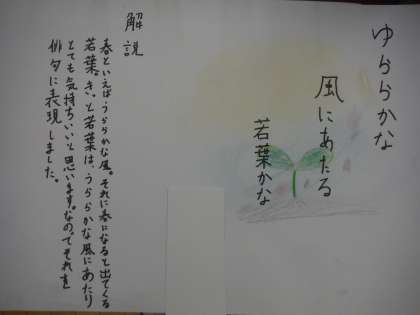 ゆららかな
風にあたる
若葉かな
解説
春といえばうららかな風。それに春になると出てくる
若葉。きっと若葉は、うららかな風にあたり
とても気持ちいいと思います。なのでそれを
俳句に表現しました。